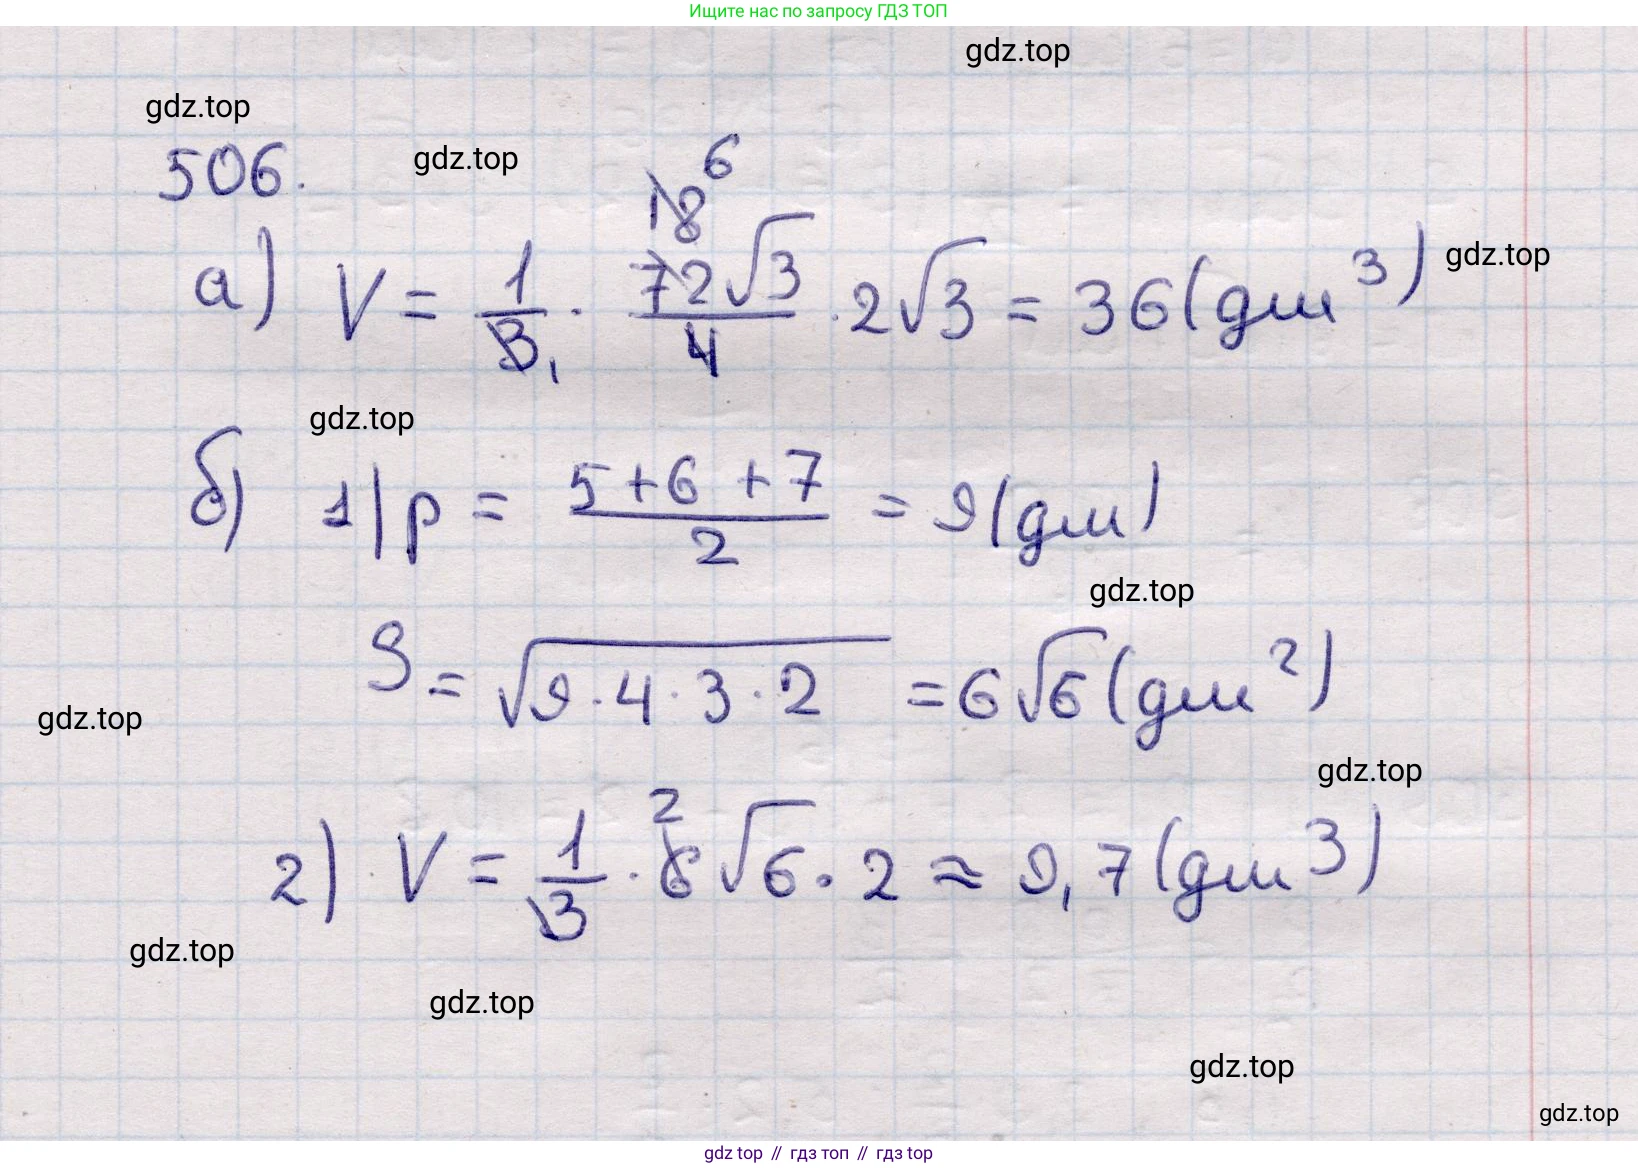 Ищите нас по запросу ГДЗ ТОП
gdz.top
gdz.top
506.
gdz.top
а) V = 1/3 1 · 72 18 6 √3/4 · 2√3 = 36 (дм³)
gdz.top
gdz.top
б) 1) p = (5+6+7)/2 = 9 (дм)
gdz.top
S = √(9·4·3·2) = 6√6 (дм²)
gdz.top
gdz.top
2) V = 1/3 · 6 2 √6 · 2 ≈ 9,7 (дм³)
gdz.top
gdz.top
gdz.top
gdz.top
gdz top // гдз топ // гдз top